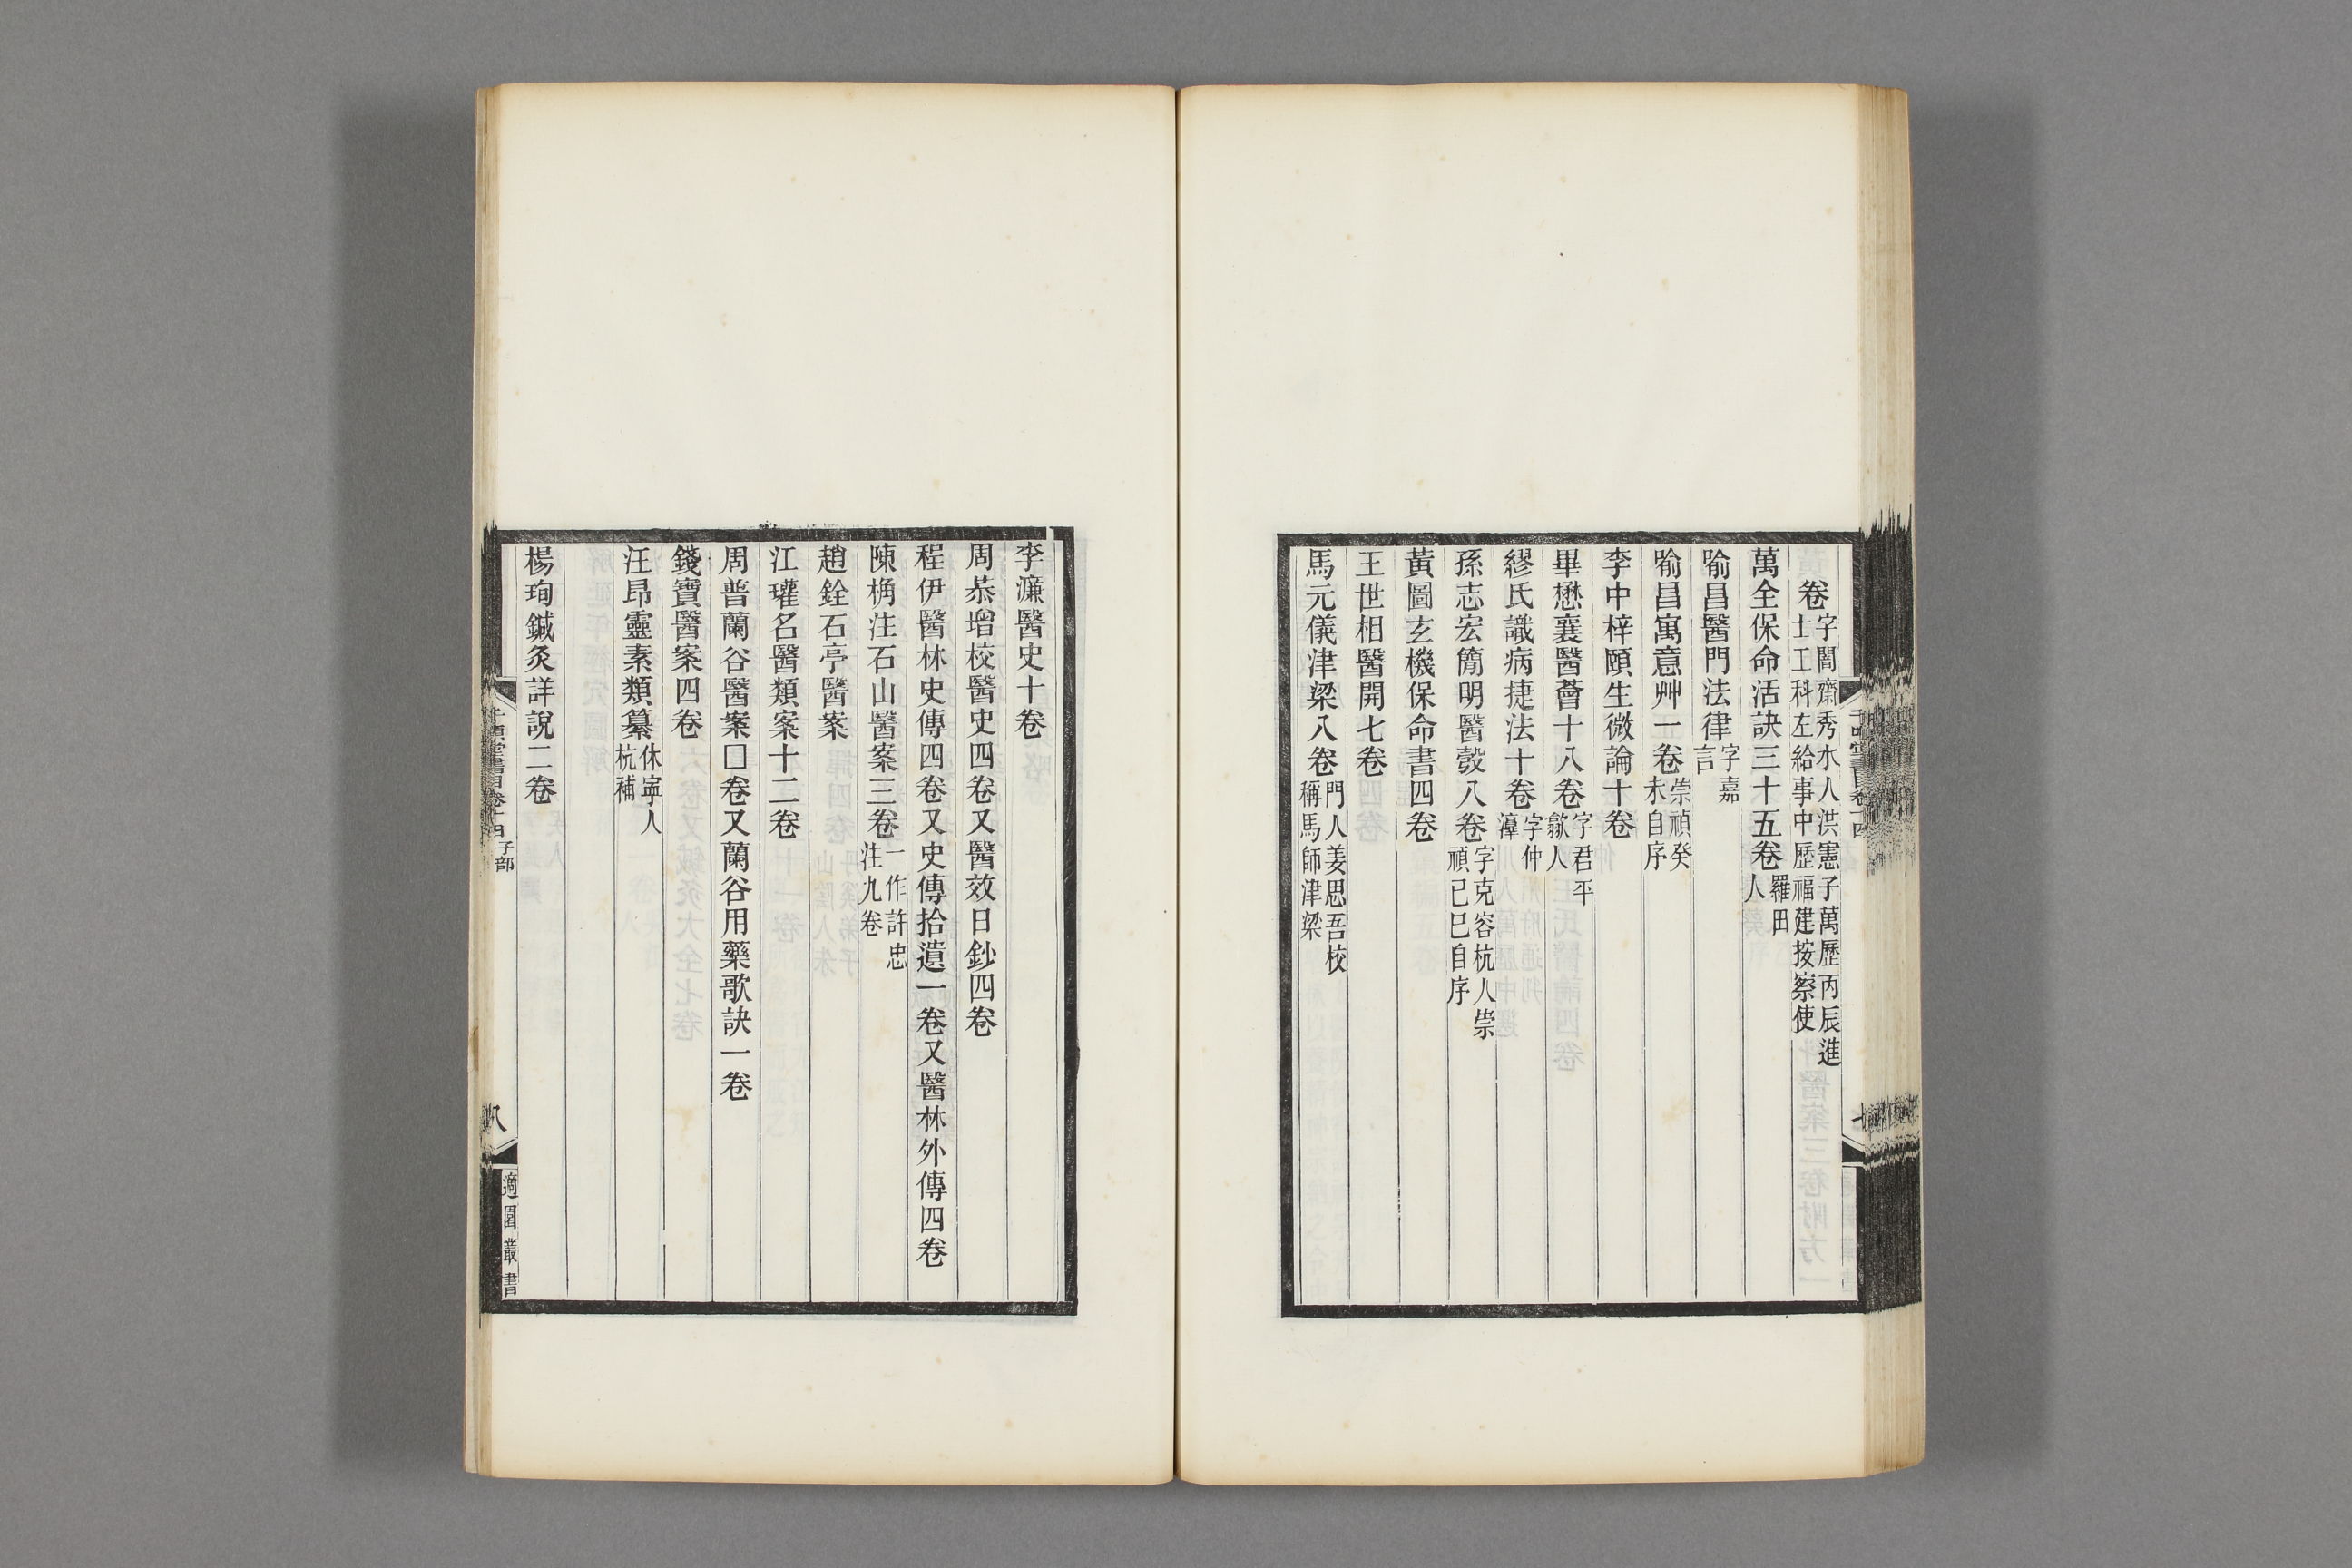 卷字閣齋秀水人洪憲子萬歷丙辰進士工科左給事中歷福建按察使
萬全保命活訣三十五卷羅田人
喻昌醫門法律字嘉言
喻昌寓意艸一卷崇禎癸未自序
李中梓頤生微論十卷
畢懋襄醫薈十八卷字君平歙人
繆氏識病捷法十卷字仲漳
孫志宏簡明醫彀八卷字克容杭人崇禎已巳自序
黃圖玄機保命書四卷
王世相醫開七卷
馬元儀津梁八卷門人姜思吾校稱馬師津梁
李濂醫史十卷
周恭增校醫史四卷又醫效日鈔四卷
程伊醫林史傳四卷又史傳拾遺一卷又醫林外傳四卷
陳桷注石山醫案三卷一作許忠注九卷
趙銓石亭醫案
江瓘名醫類案十二卷
周普蘭谷醫案□卷又蘭谷用藥歌訣一卷
錢寶醫案四卷
汪昂靈素類纂休寧人杭補
楊珣鍼灸詳說二卷
千頃堂書目卷十四 子部
八
適園叢書